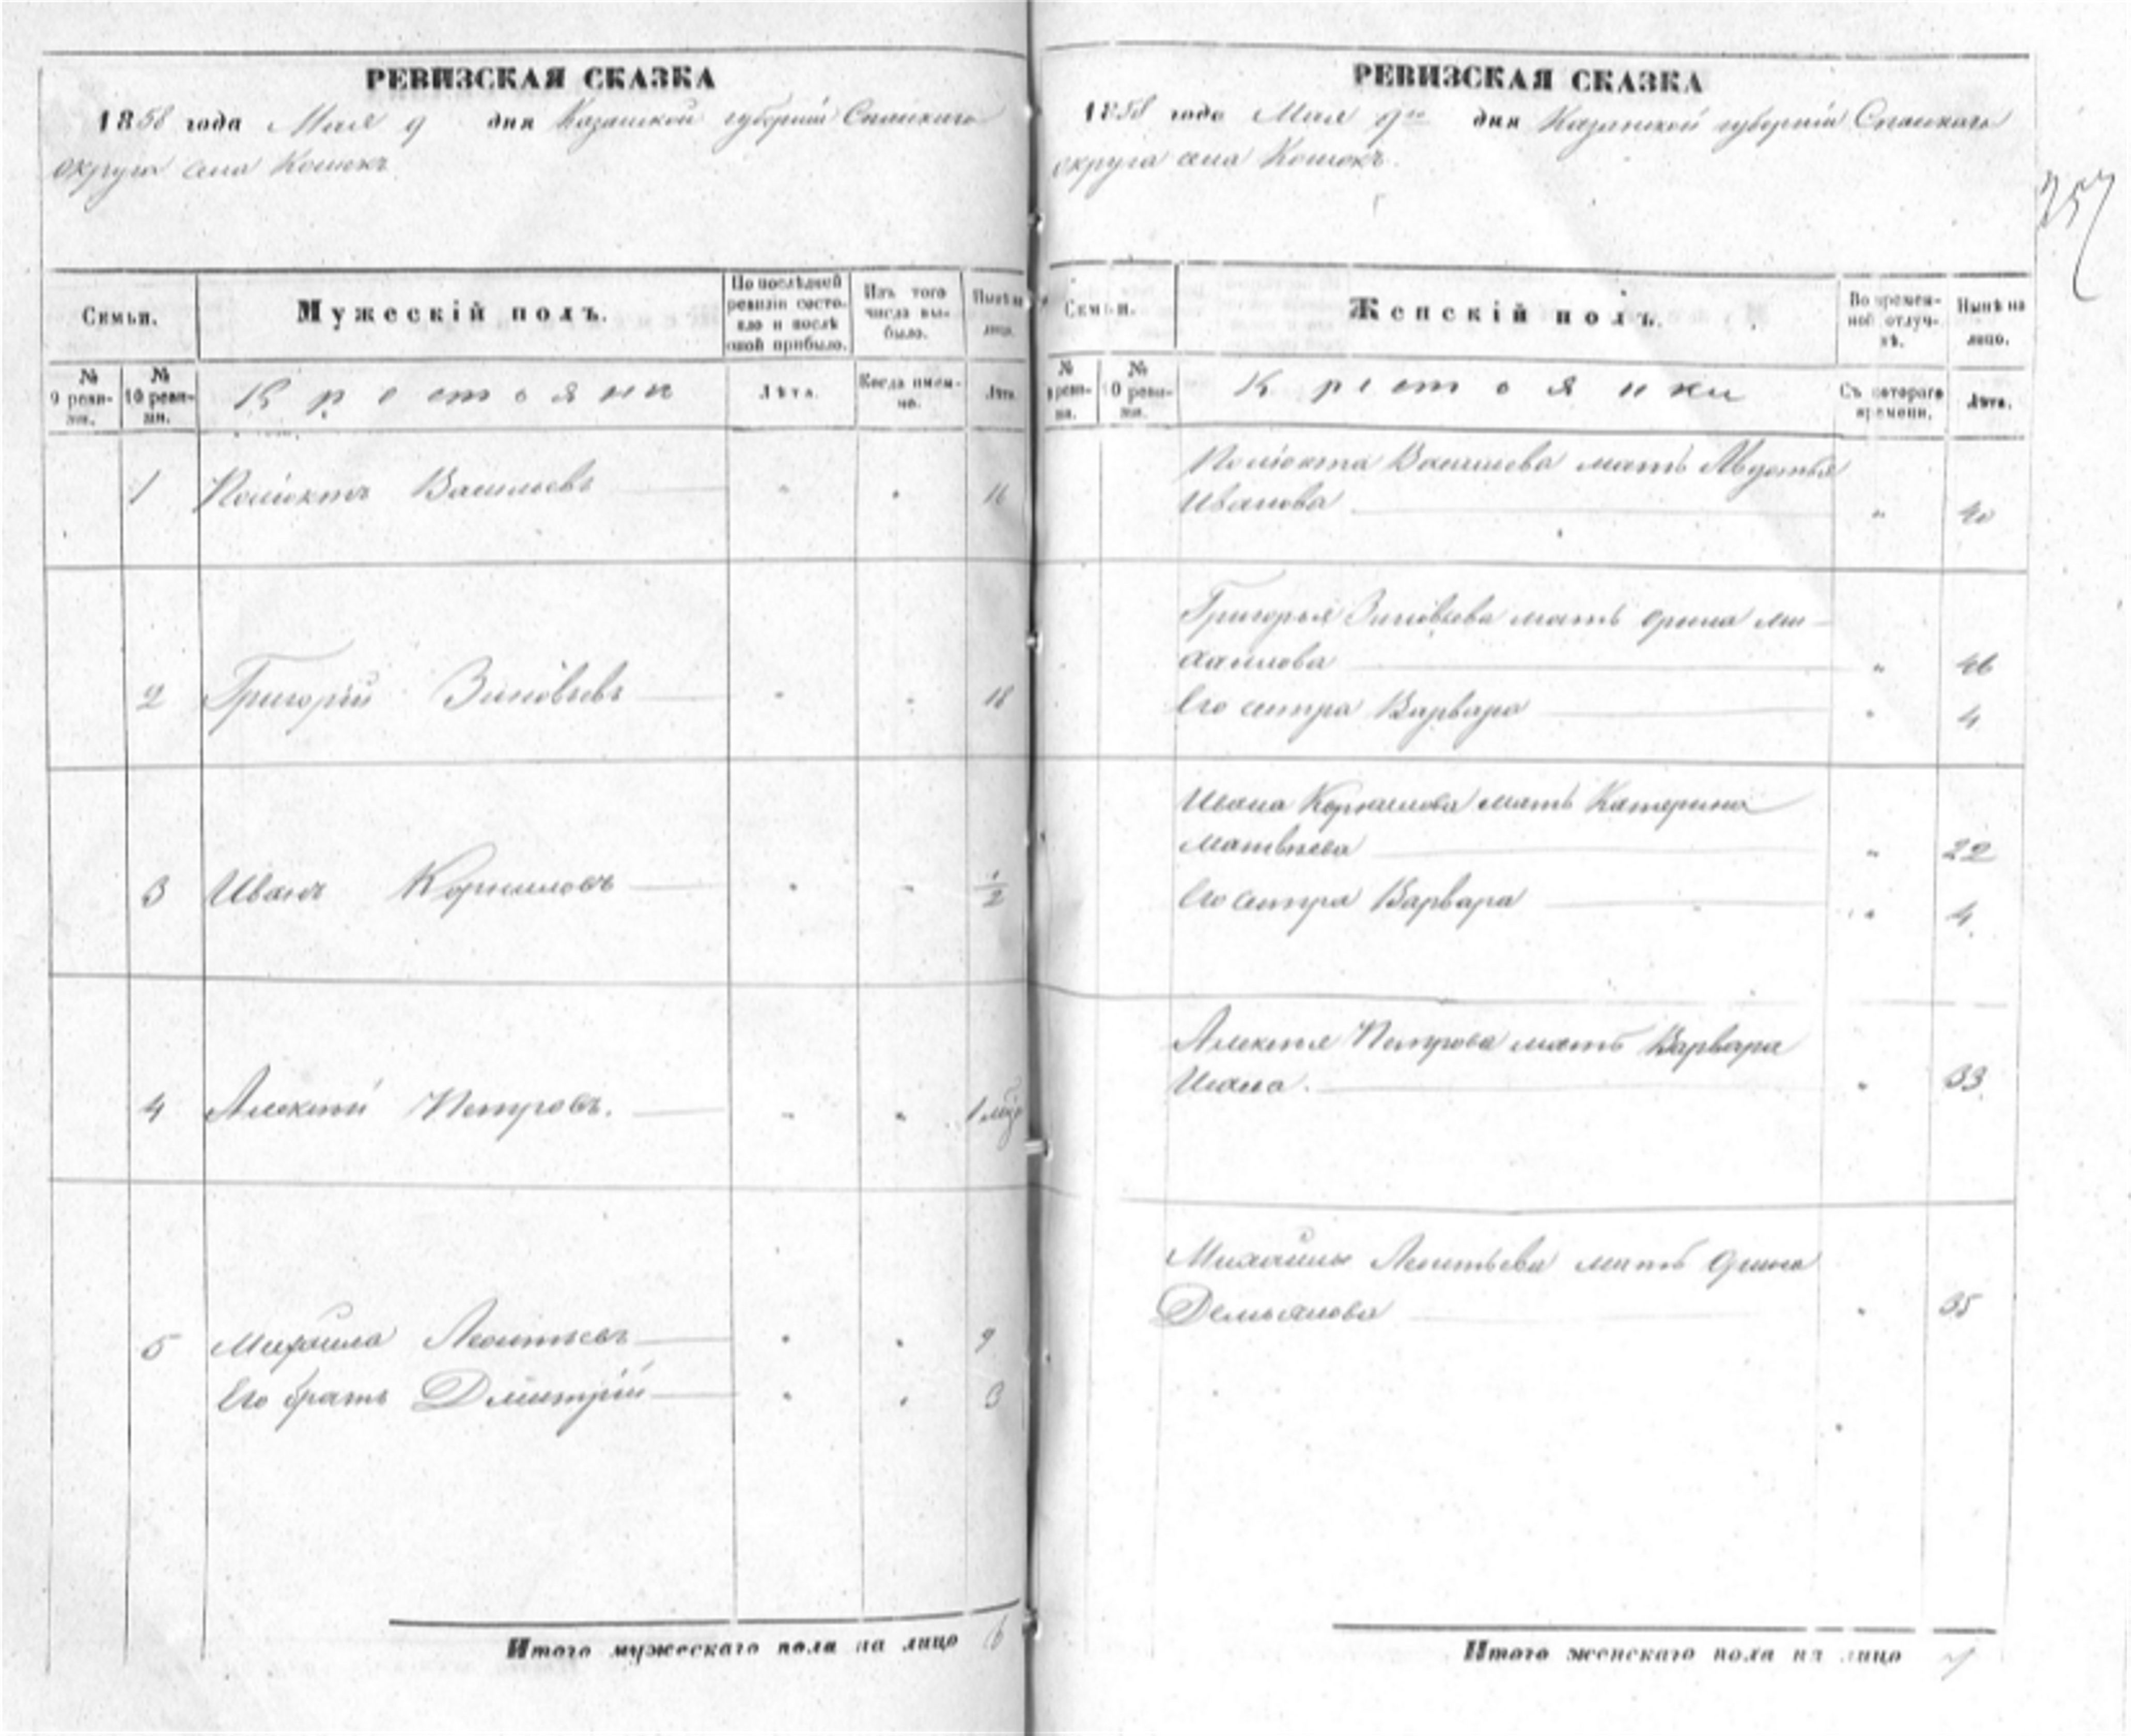 РЕВИЗСКАЯ СКАЗКА
1858 года Мая 9 дня Казанской губернiи Спаскаго
округа села Кошокъ
Семьи.
Мужескiй полъ.
По послѣдней
ревизiи состо-
яло и послѣ
оной прибыло.
Изъ того
числа вы-
было.
Нынѣ на
лицо.
№
9 реви-
зiи.
№
10 реви-
зiи.
Крестьяне
Лѣта.
Когда имен-
но.
Лѣта.
1 Полiоктъ Васильевъ " " 16
2 Григорiй Зиновьевъ " " 18
3 Иванъ Корниловъ " " 1/2
4 Алексѣй Петровъ. " " 1 мѣс
5 Михайла Леонтьевъ " " 9
Его братъ Дмитрiй " " 3
Итого мужескаго пола на лицо 6
РЕВИЗСКАЯ СКАЗКА
1858 года Мая 9го дня Казанской губернiи Спаскаго
округа села Кошокъ.
257
Семьи.
Женскiй полъ.
Во времен-
ной отлуч-
кѣ.
Нынѣ на
лицо.
№
9 реви-
зiи.
№
10 реви-
зiи.
Крестьянки
Съ котораго
времени.
Лѣта.
Полiокта Васильева мать Авдотья
Иванова " 40
Григорья Зиновьева мать Орина Ми-
хаилова " 46
Его сестра Варвара " 4
Ивана Корнилова мать Катерина
Матвѣева " 22
Его сестра Варвара " 4
Алексѣя Петрова мать Варвара
" 33
Михайлы Леонтьева мать
Демьянова " 35
Итого женскаго пола на лицо 7